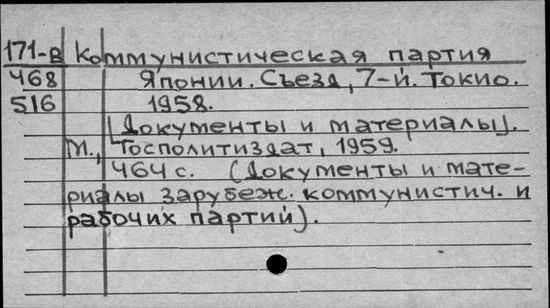 171-в Коммунистическая партия
468 Японии. Съезд, 7-й. Токио.
516 1958.
[Документы и материалы].
М., Госполитиздат, 1959.
464 с. (Документы и мате-
риалы зарубеж. коммунистич. и
рабочих партий).